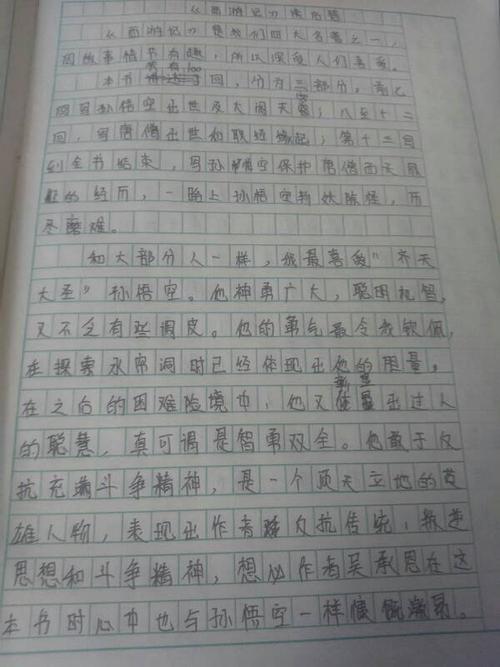 《西游记》读后感
《西游记》是我们四大名著之一，
因故事情节有趣，所以深受人们喜爱。
本书共有100回，分为三部分，前七
回写孙悟空出世及大闹天宫；八至十二
回，写唐僧出世和取经缘起；第十三写
到全书结束，写孙悟空保护唐僧西天取
经的经历，一路上孙悟空斩妖除怪，历
尽磨难。
和大部分人一样，我最喜爱“齐天
大圣”孙悟空。他神勇广大，聪明机智，
又不乏有些调皮。他的勇气最令我钦佩，
在探索水帘洞时已经体现出他的胆量，
在之后的困难险境中，他又彰显出过人
的聪慧，真可谓是智勇双全。他敢于反
抗充满斗争精神，是一个顶天立地的英
雄人物，表现出作者反抗传统，叛逆
思想和斗争精神，想必作者吴承恩在这
本书时心中也与孙悟空一样慷慨激昂。